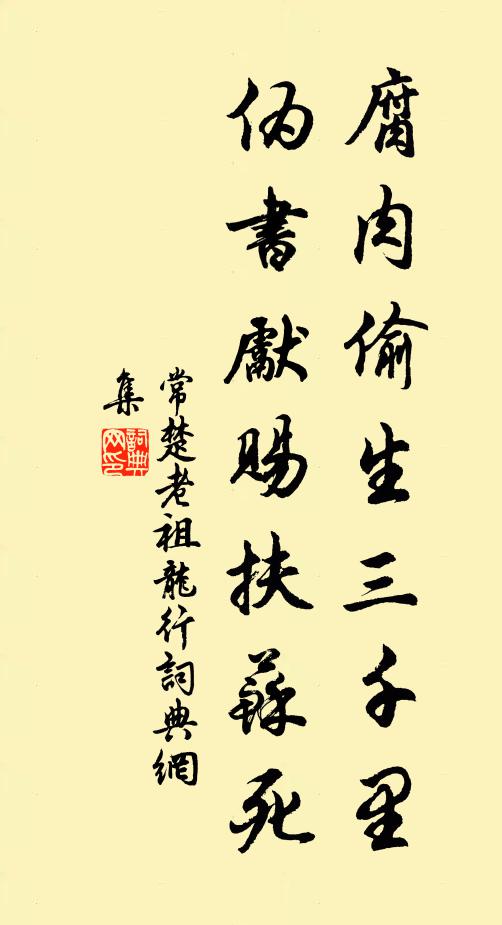 腐肉偷生三千里
伪書獻賜扶蘇死
常楚老祖龍行詞典網
集
詞典
网印